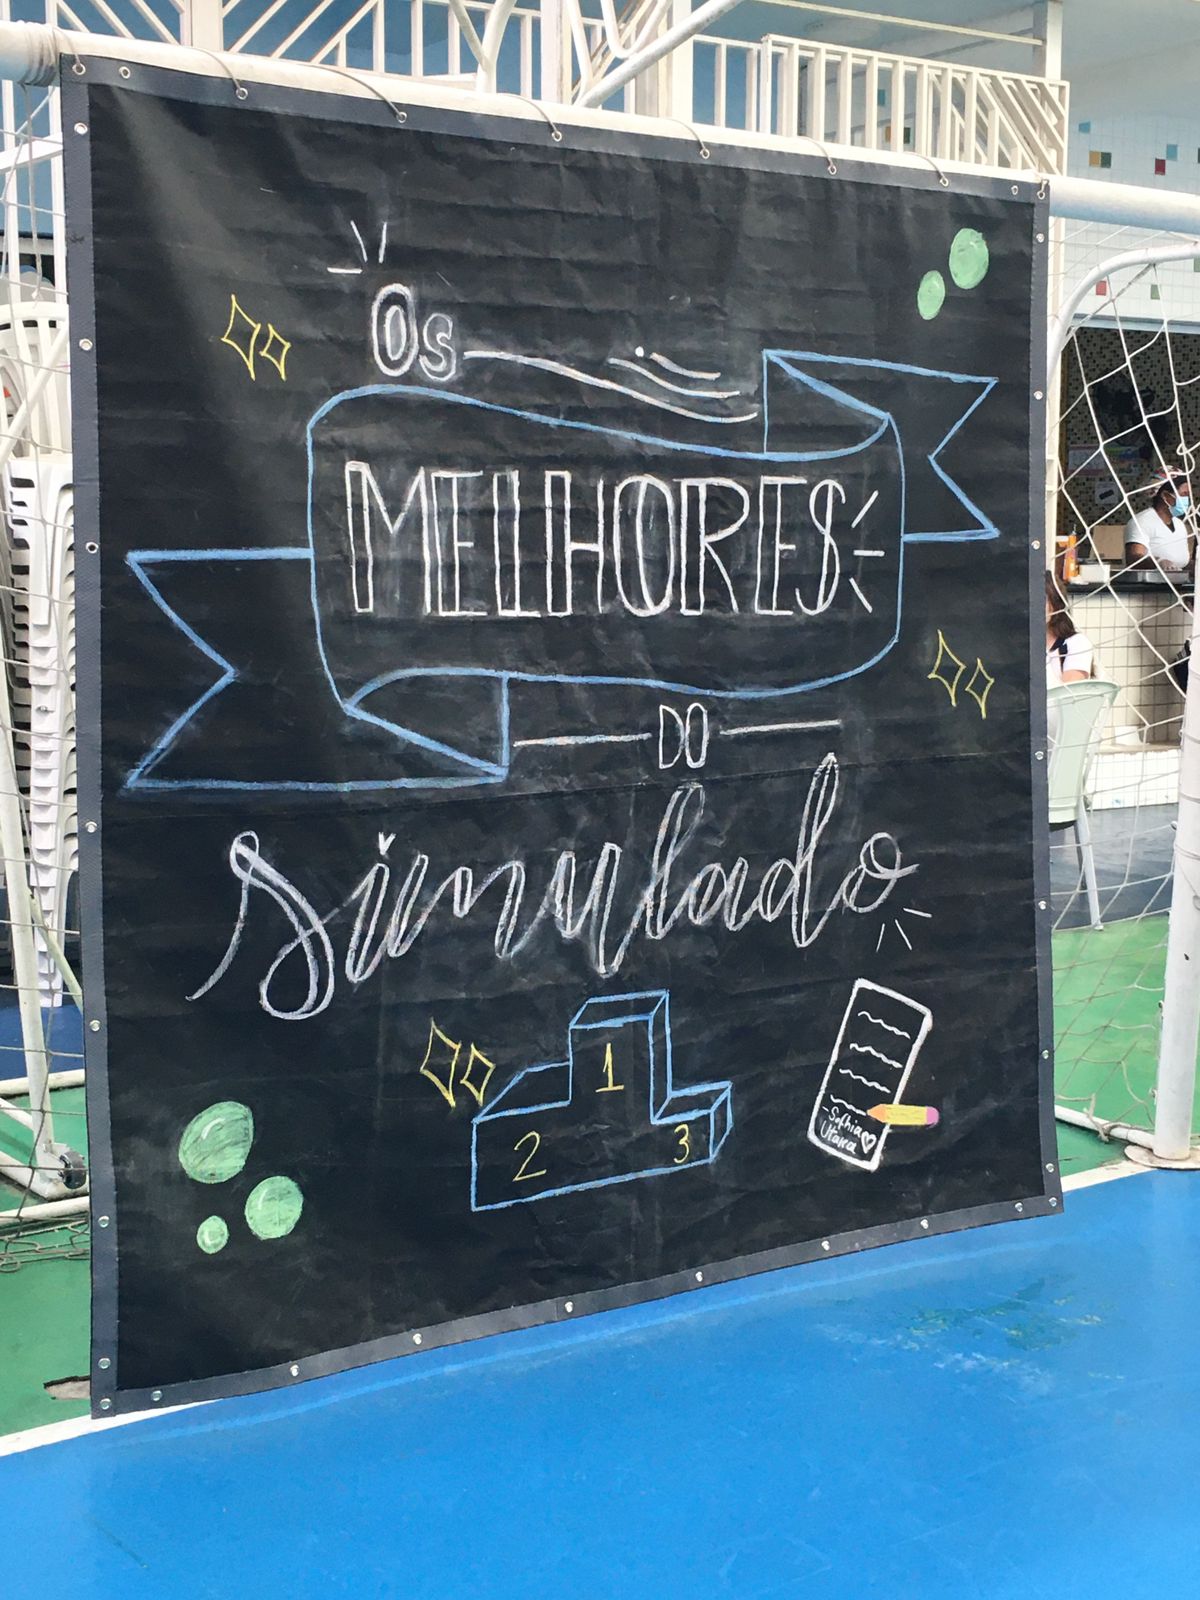 Os
MELHORES
DO
simulado
1
2 3
-Sofhia
Utawa